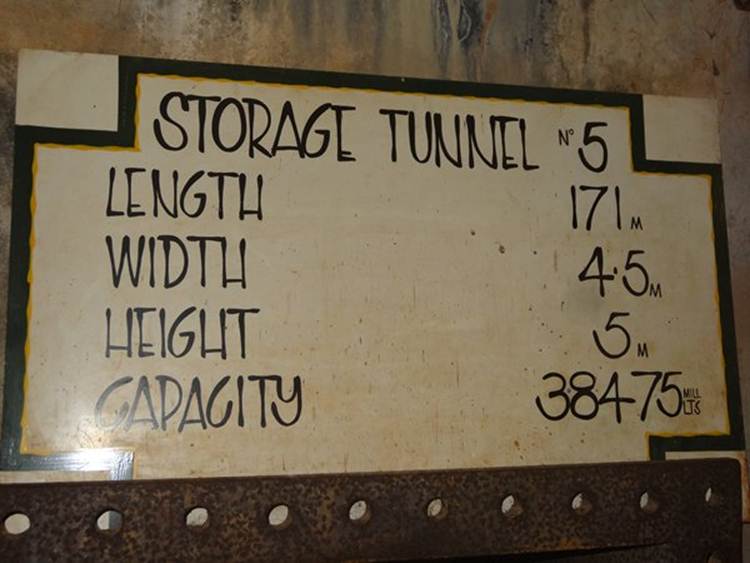 STORAGE TUNNEL Nº 5
LENGTH 171 M
WIDTH 4·5 M
HEIGHT 5 M
CAPACITY 3·8475 MILL LTS